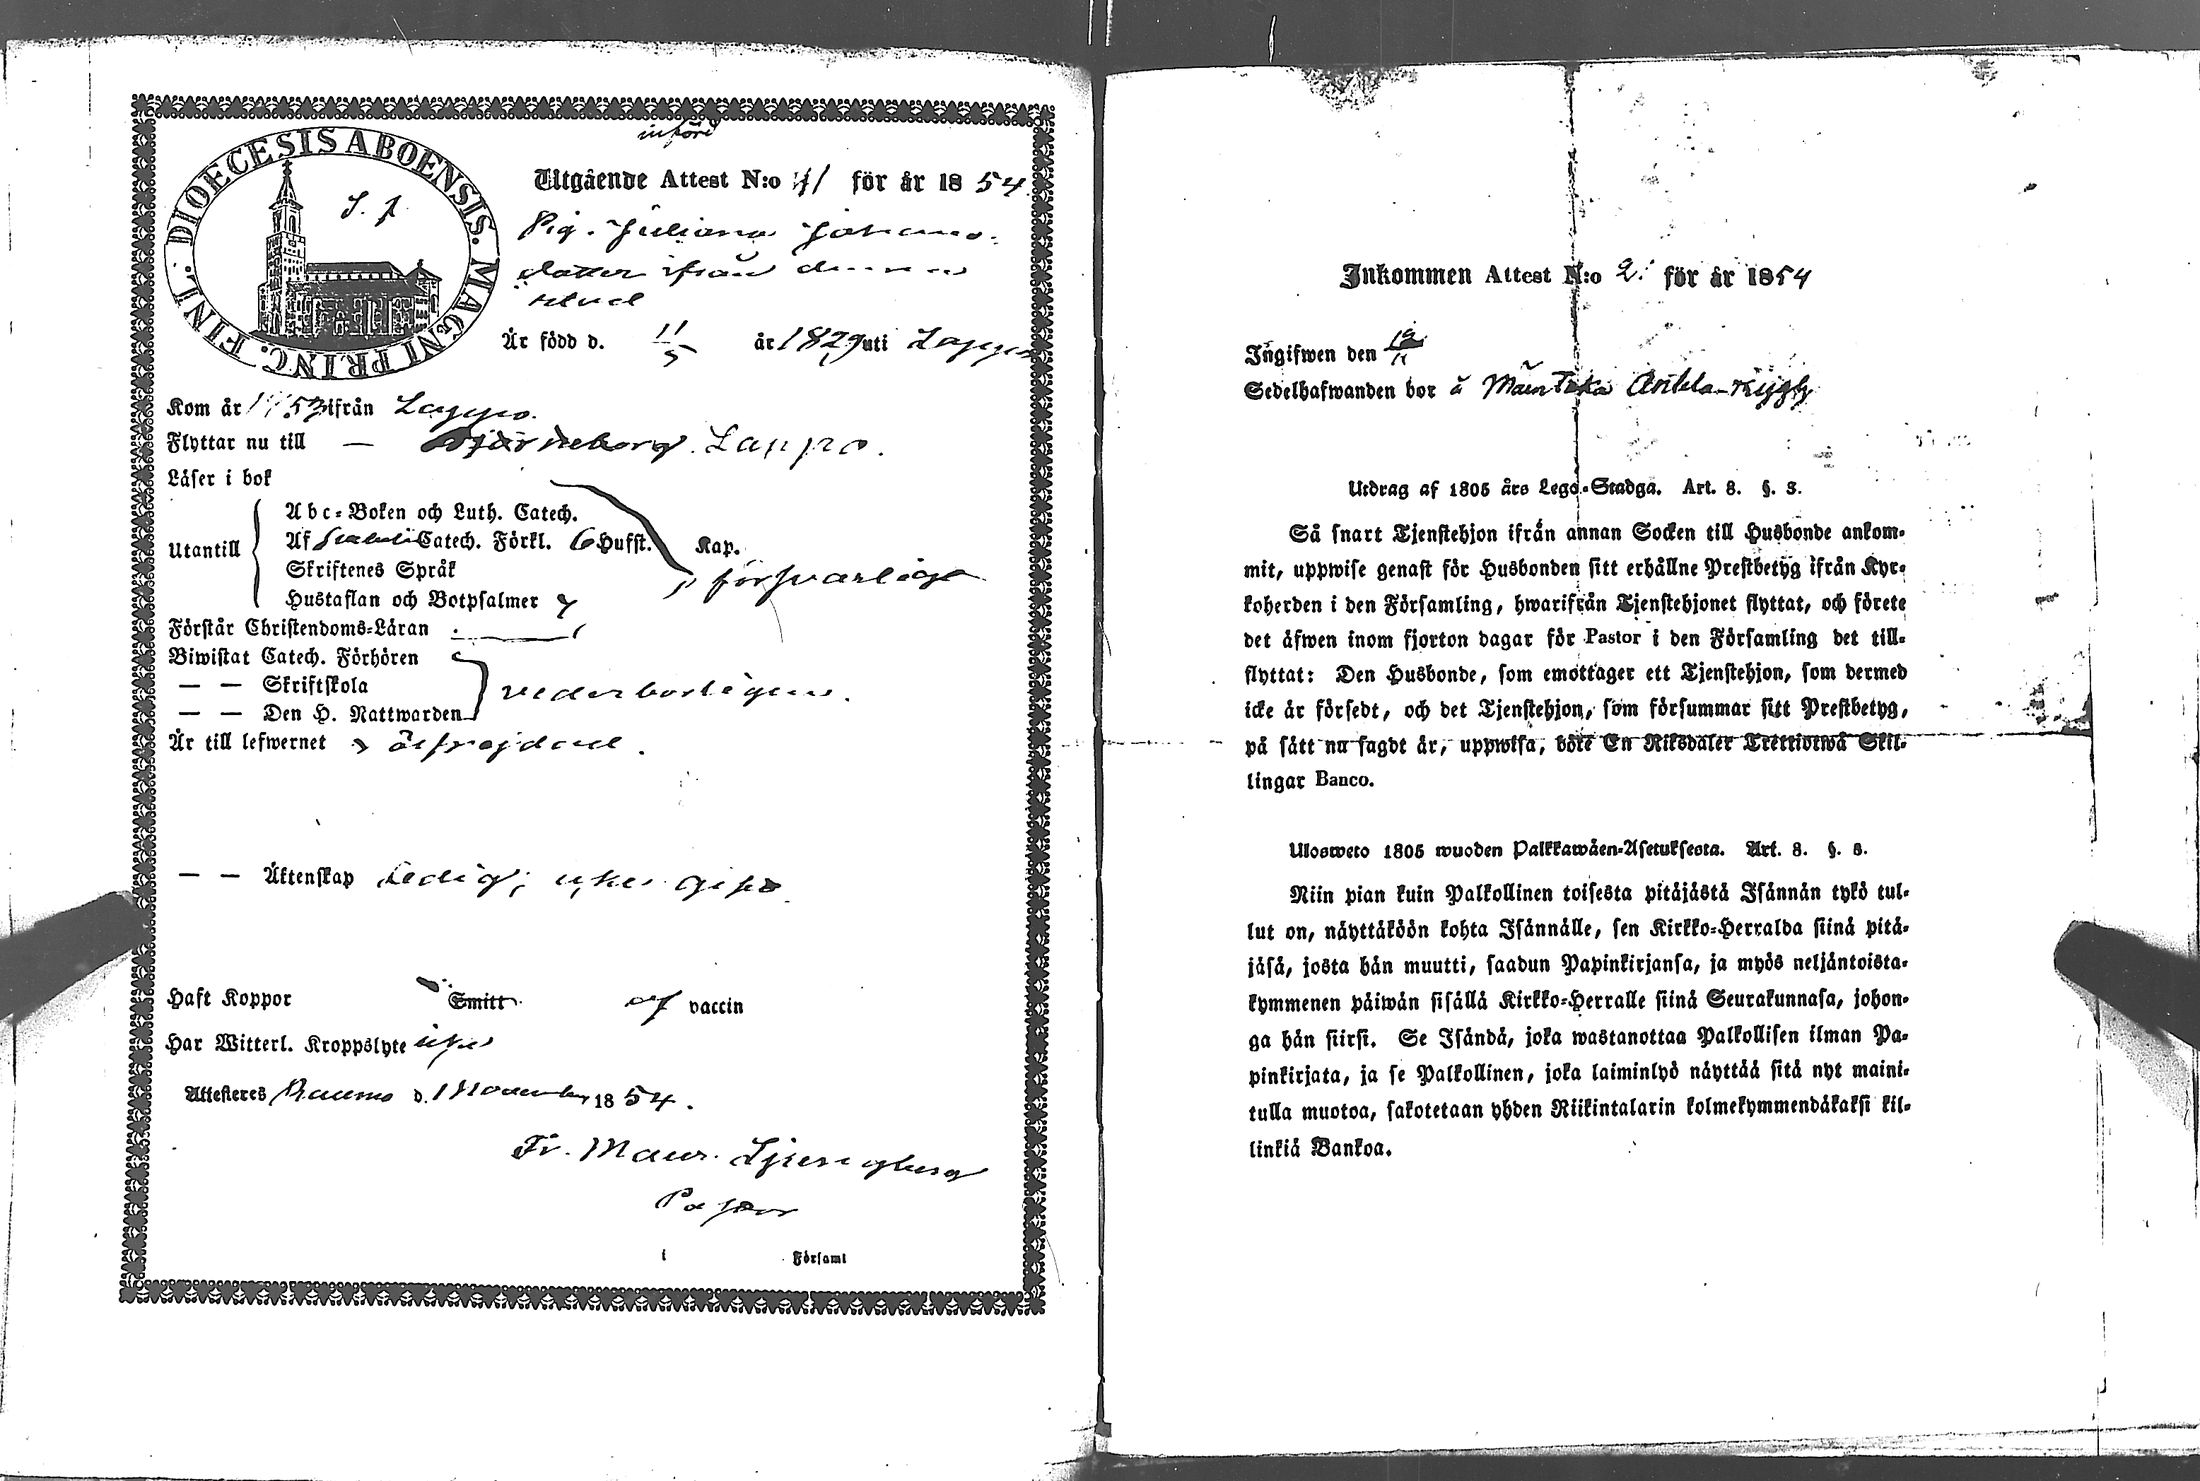 införd
DIOECESIS ABOENSIS. MAGNI PRINC. FINL.
S. f.
Utgående Attest N:o 41 för år 1854
Pig. Juliana Johans-
dotter ifrån denna
stad
Är född d. 11/5 år 1829 uti Lappo
Kom år 1853 ifrån Lappo.
Flyttar nu till — Björneborg. Lappo.
Läser i bok
Utantill
Abc-Boken och Luth. Catech.
Af Svebelii Catech. Förkl. 6 Hufst. Kap.
Skriftenes Språk
försvarligt
Hustaflan och Botpsalmer
Förstår Christendoms-Läran
Biwistat Catech. Förhören
— — Skriftskola
vederbörligen.
— — Den H. Nattwarden
Är till lefwernet ärfrejdad.
— — Äktenskap ledig, icke gift
Haft Koppor Smitt af vaccin
Har Witterl. Kroppslyte icke
Attesteres Raumo d. 1 November 1854.
Fr. Maur. Ljungberg
Pastor
i Församl
Inkommen Attest N:o 2: för år 1854
Ingifwen den
Sedelhafwanden bor å Mäntaka Ankla-rygg
Utdrag af 1805 års Lego-Stadga. Art. 8. §. 3.
Så snart Tjenstehjon ifrån annan Socken till Husbonde ankom-
mit, uppwise genast för Husbonden sitt erhållne Prestbetyg ifrån Kyr-
koherden i den Församling, hwarifrån Tjenstehjonet flyttat, och förete
det äfwen inom fjorton dagar för Pastor i den Församling det till-
flyttat: Den Husbonde, som emottager ett Tjenstehjon, som dermed
icke är försedt, och det Tjenstehjon, som försummar sitt Prestbetyg,
på sätt nu sagdt är, uppwisa, böte En Riksdaler Trettiotwå Skil-
lingar Banco.
Ulosweto 1805 wuoden Palkkawäen-Asetuksesta. Art. 8. §. 3.
Niin pian kuin Palkollinen toisesta pitäjästä Isännän tykö tul-
lut on, näyttäköön kohta Isännälle, sen Kirkko-Herralda siinä pitä-
jäsä, josta hän muutti, saadun Papinkirjansa, ja myös neljäntoista-
kymmenen päiwän sisällä Kirkko-Herralle siinä Seurakunnasa, johon-
ga hän siirsi. Se Isändä, joka wastanottaa Palkollisen ilman Pa-
pinkirjata, ja se Palkollinen, joka laiminlyö näyttää sitä nyt maini-
tulla muotoa, sakotetaan yhden Riikintalarin kolmekymmendäkaksi kil-
linkiä Bankoa.